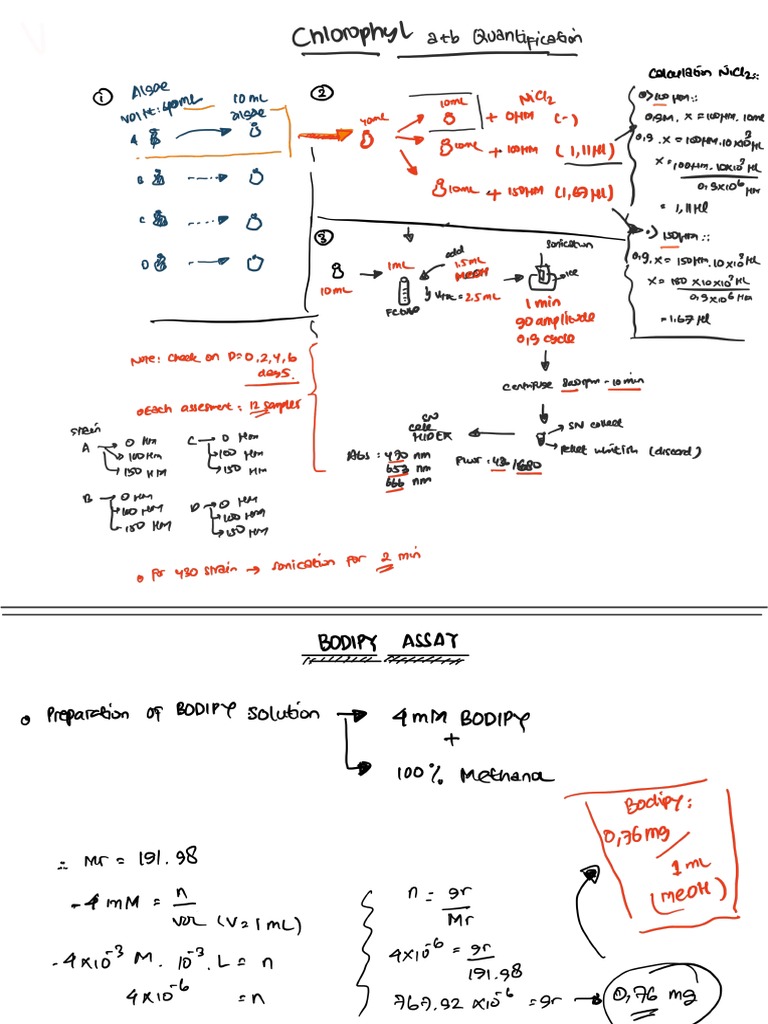 Chlorophyl a+b Quantification
①
Algae
Volt: 40mL
10 mL
algae
A
B
C
D
②
40mL
NiCl2
10mL + 0HM (-)
10mL + 100HM (1,11Hl)
10mL + 150HM (1,67Hl)
Calculation NiCl2::
0,9M. X = 100HM. 10mL
0,9. X = 100HM. 10x10³ Hl
X = 100HM. 10x10³ Hl
0,9x10⁶ HM
= 1,11Hl
•) 150HM::
0,9. X = 150HM. 10x10³ Hl
X = 150 x10x10³ Hl
0,9x10⁶ HM
= 1.67 Hl
③
10mL
1mL
add
1.5mL
MeOH
= 2.5mL
sonication
ice
1 min
90 amplitude
0,9 cycle
centrifuse 8000rpm - 10 min
SN collect
pellet whitish (discard)
SN
HIDEX
Abs : 470 nm
653 nm
666 nm
/680
Note: check on D=0,2,4,6
days.
o Each assesment = 12 samples
strain
A → 0 HM
→ 100 HM
→ 150 HM
C → 0 HM
→ 100 HM
→ 150 HM
B → 0 HM
→ 100 HM
→ 150 HM
D → 0 HM
→ 100 HM
→ 150 HM
o For 430 strain → sonication for 2 min
BODIPY ASSAY
o Preparation of BODIPY solution → 4 mM BODIPY
+
→ 100% Methanol
Bodipy:
0,76 mg
/
1 mL
(MeOH)
∴ Mr = 191.98
- 4 mM = n
vol (V=1mL)
- 4x10⁻³ M. 10⁻³. L = n
4x10⁻⁶ = n
n = gr
Mr
4x10⁻⁶ = gr
191.98
767.92 x10⁻⁶ = gr → 0,76 mg